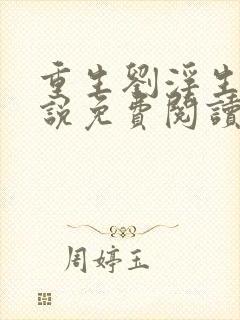 重生劉淫生
說免費閱讀
周婷玉